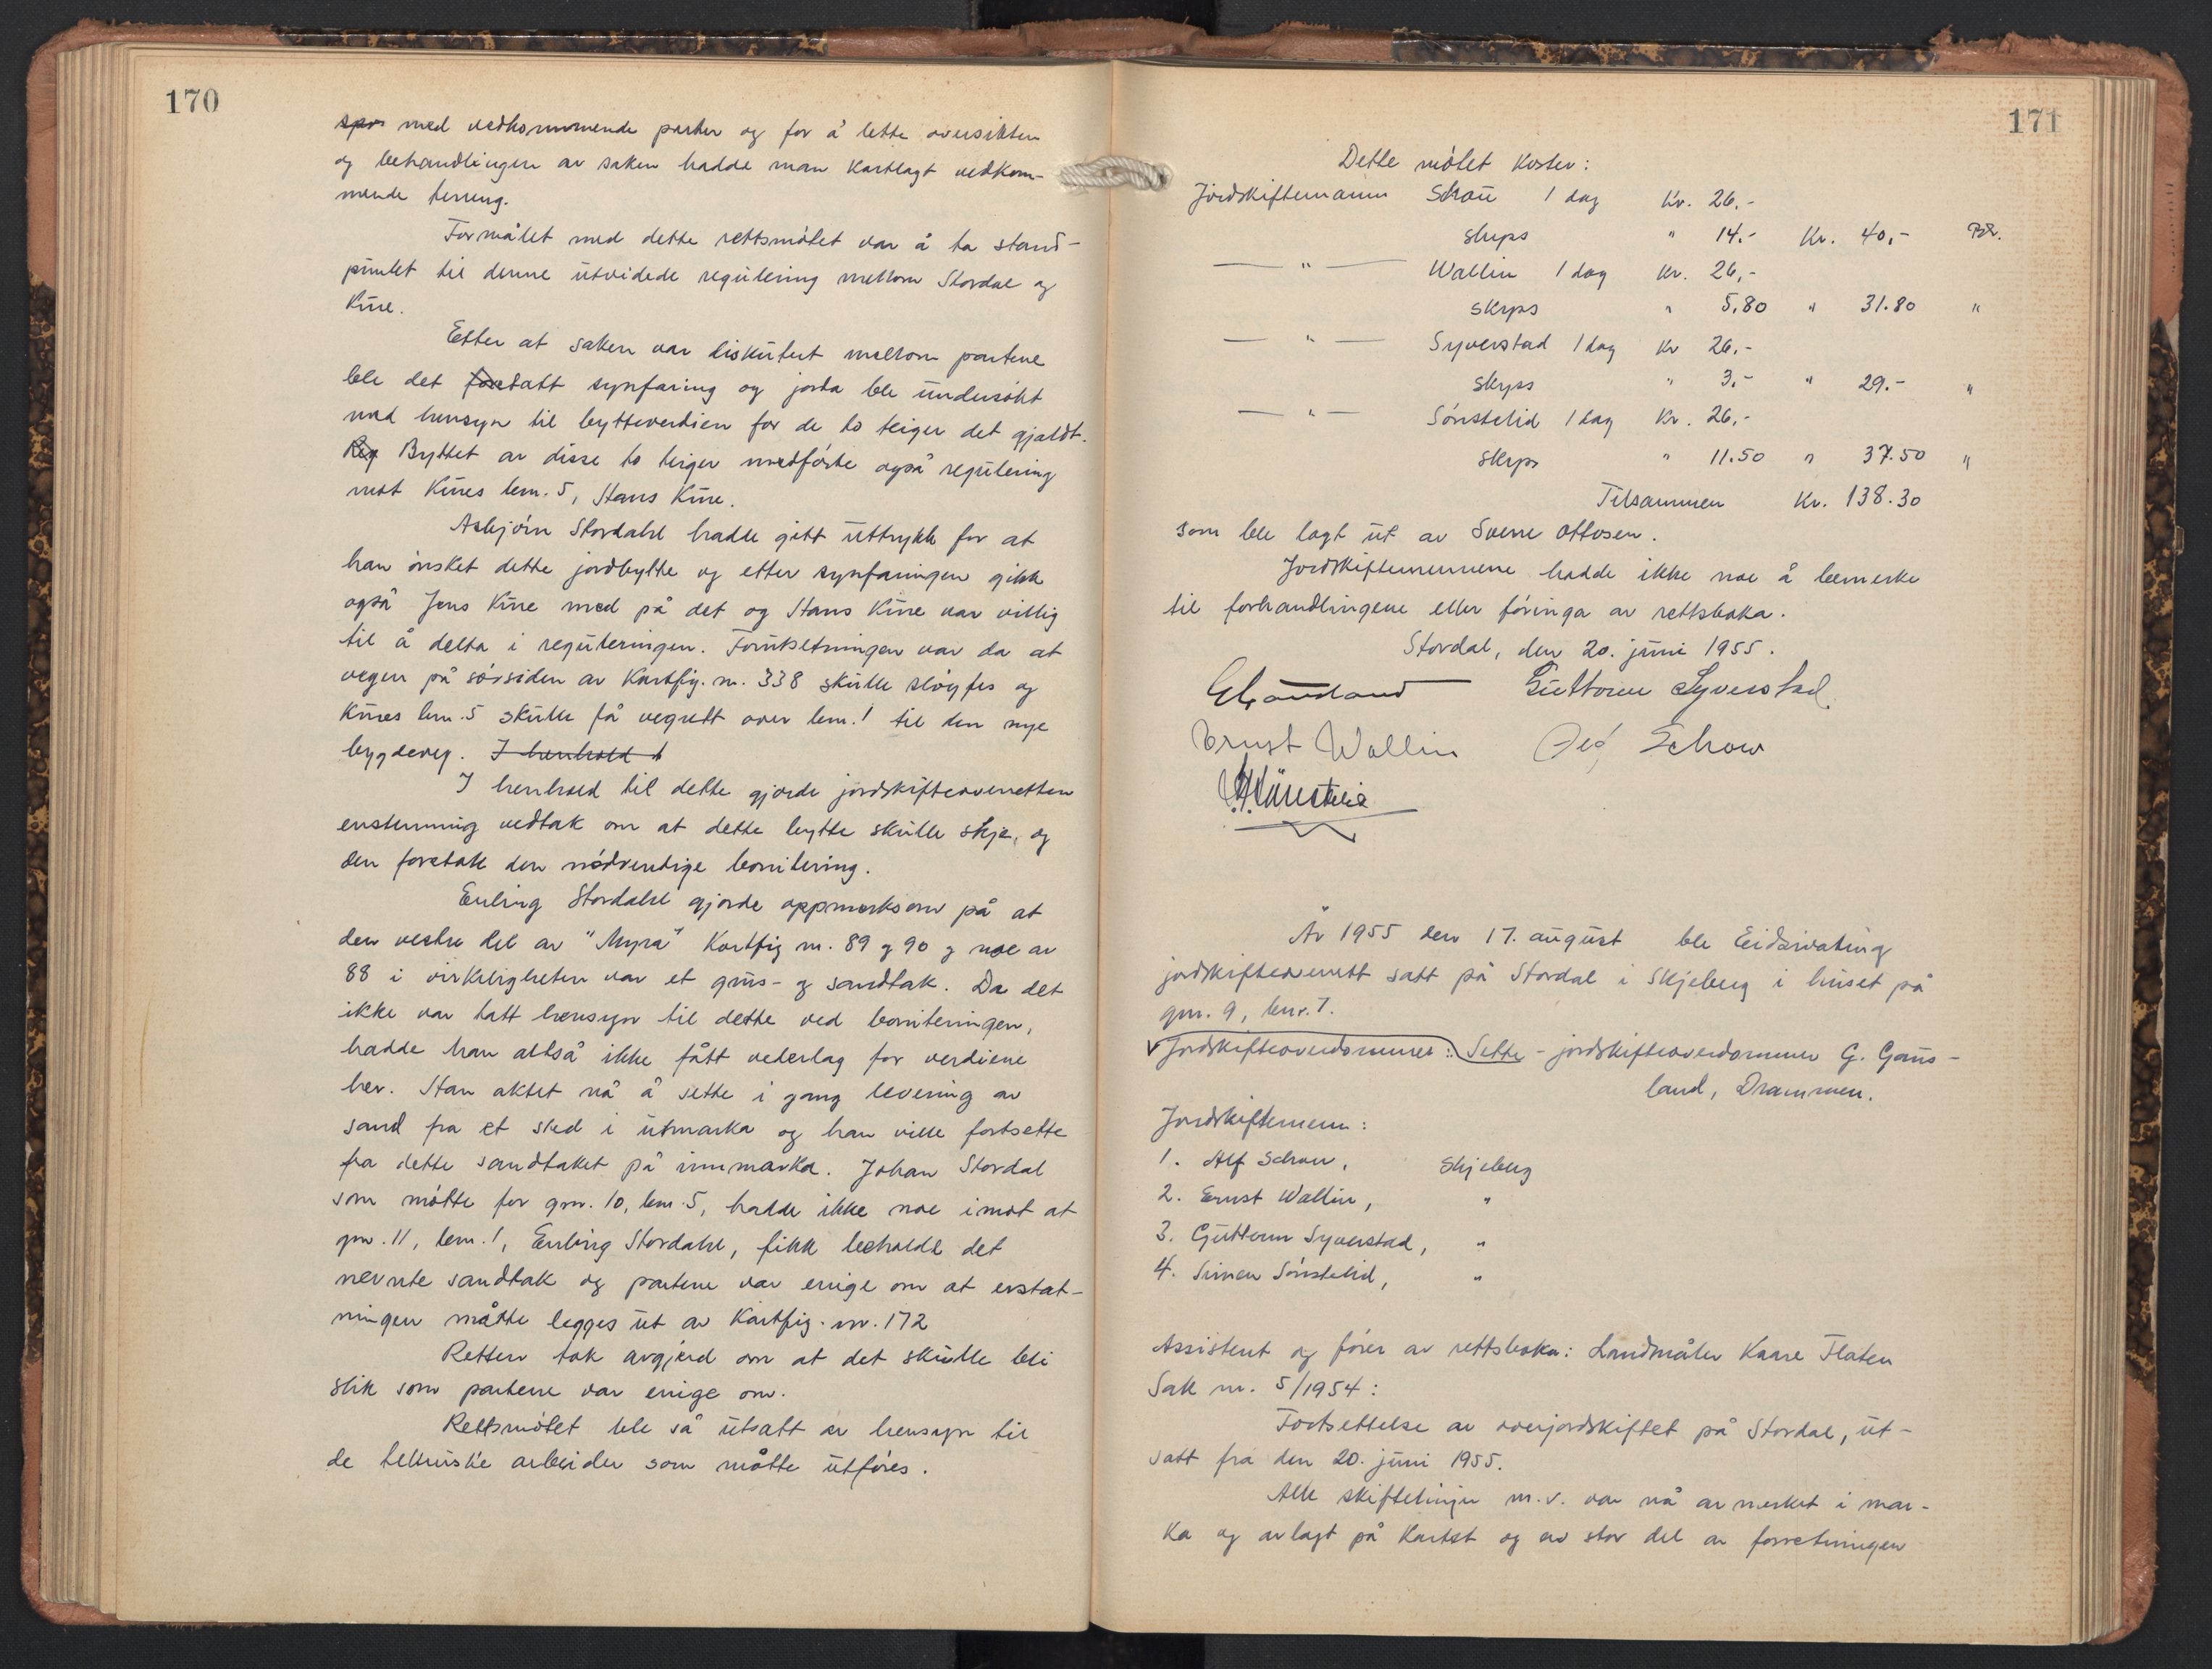 170
med vedkommende parter og for å lette oversikten
og behandlingen av saken hadde man kartlagt vedkom-
mende terreng.
Formålet med dette rettsmötet var å ta stand-
punktet til denne utvidede regulering mellom Stordal og
Kure.
Etter at saken var diskutert mellom partene
ble det foretatt synfaring og jorda ble undersökt
med hensyn til bytteverdien for de to teiger det gjaldt.
Reg Byttet av disse to teiger medförte også regulering
mot Kures bnr. 5, Hans Kure.
Asbjörn Stordahl hadde gitt uttrykk for at
han önsket dette jordbytte og etter synfaringen gikk
også Jens Kure med på det og Hans Kure var villig
til å delta i reguleringen. Forutsetningen var da at
vegen på sörsiden av Kartfig. nr. 338 skulle slöyfes og
Kures bnr. 5 skulle få vegrett over bnr. 1 til den nye
bygdeveg. I henhold t
I henhold til dette gjorde jordskifteoverretten
enstemmig vedtak om at dette bytte skulle skje, og
den foretok den nödvendige bonitering.
Erling Stordahl gjorde oppmerksom på at
den vestre del av "Myra" Kartfig nr. 89 og 90 og noe av
88 i virkeligheten var et grus- og sandtak. Da det
ikke var tatt hensyn til dette ved boniteringen,
hadde han altså ikke fått vederlag for verdiene
her. Han aktet nå å sette i gang levering av
sand fra et sted i utmarka og han ville fortsette
fra dette sandtaket på innmarka. Johan Stordal
som mötte for gnr. 10, bnr. 5, hadde ikke noe imot at
gnr. 11, bnr. 1, Erling Stordahl, fikk beholde det
nevnte sandtak og partene var enige om at erstat-
ningen måtte legges ut av Kartfig. nr. 172
Retten tok avgjörd om at det skulle bli
slik som partene var enige om.
Rettsmötet ble så utsatt av hensyn til
de tekniske arbeider som måtte utföres.
171
Dette mötet koster:
Jordskiftemann Schou 1 dag Kr. 26,-
skyss " 14.- Kr. 40,- Bt.
— " — Wallin 1 dag Kr. 26,-
skyss " 5,80 " 31.80 "
— " — Syverstad 1 dag Kr 26,-
skyss " 3,- " 29.- "
— " — Sönstelid 1 dag Kr. 26,-
skyss " 11.50 " 37.50 "
Tilsammen Kr. 138.30
som ble lagt ut av Sverre Ottosen.
Jordskiftemennene hadde ikke noe å bemerke
til forhandlingene eller föringa av rettsboka.
Stordal, den 20. juni 1955.
G Gausland Guttorm Syverstad
Ernst Wallin Alf Schou
Sönstelid
År 1955 den 17. august ble Eidsivating
jordskifteoverrett satt på Stordal i Skjeberg i huset på
gnr. 9, bnr. 7.
Jordskifteoverdommer: Sette-jordskifteoverdommer G. Gaus-
land, Drammen.
Jordskiftemenn:
1. Alf Schou, Skjeberg
2. Ernst Wallin, "
3. Guttorm Syverstad, "
4. Simen Sönstelid, "
Assistent og förer av rettsboka: Landmåler Kaare Flaten
Sak nr. 5/1954:
Fortsettelse av overjordskiftet på Stordal, ut-
satt fra den 20. juni 1955.
Alle skiftelinjer m.v. var nå avmerket i mar-
ka og avlagt på Kartet og en stor del av forretningen